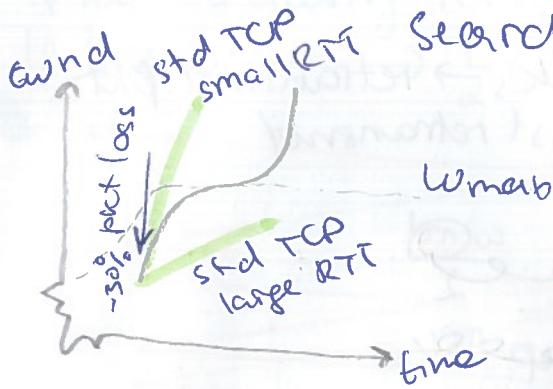 cwnd
std TCP
small RTT
Search
-30% pkt loss
Wmax
std TCP
large RTT
time